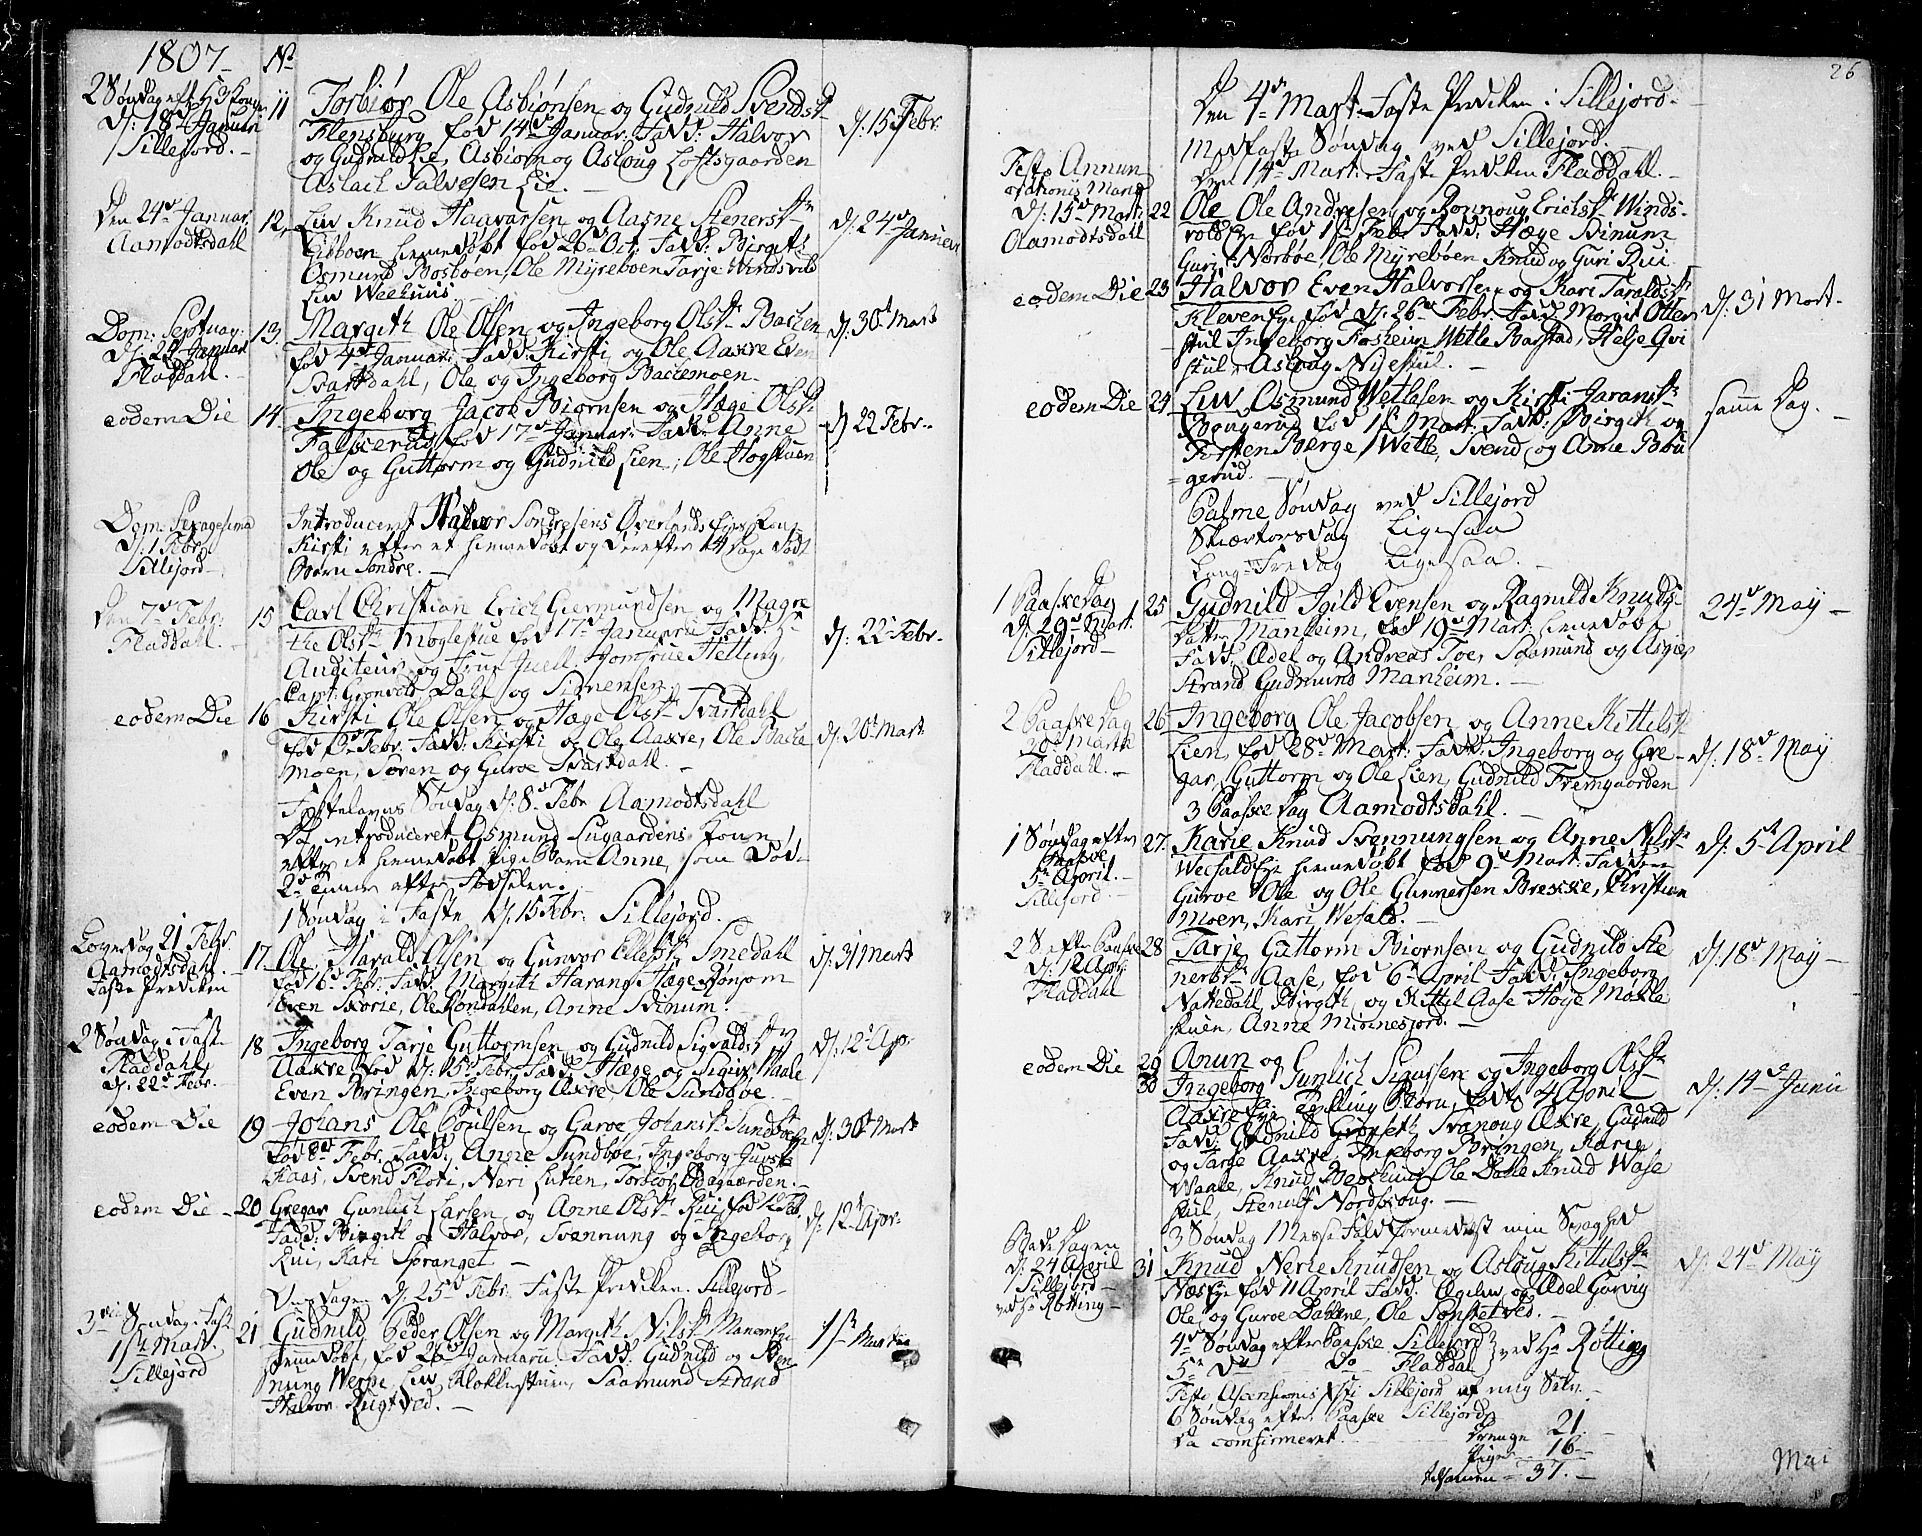 1807 No
2 Søndag eft H 3 Konger
d: 18de Januari
Sillejord.
11 Torbiør Ole Asbiønsen og Gudnild Svendsd
Flensburg fød 14de Januar: Fadd: Halvor
og Gudnild Lie, Asbiørn og Asloug Loftsgaarden
Aslach Salvesen Lie.
d: 15 Febr:
Den 24de Januar.
Aamodtsdahl
12, Liv Knud Haavarsen og Aasne Stenersdtr
Eidboen hiemedøbt fød 26de Oct. Fadd: Birgith
Osmund Bosboen, Ole Myreboen Tarje Windsvold
Liv Weehuus
d: 24de Januari
Dom: Septuag:
d: 25 Januar
Fladdahl.
13. Margith Ole Olsen og Ingeborg Olsdr Bachen
fød 4de Januar: Fadd: Kirsti og Ole Aakre Even
Svartdahl, Ole og Ingeborg Bachemoen.
d: 30t Mart
eodem Die
14. Ingeborg Jacob Biørnsen og Hæge Olsd:
Falkerud, fød 17de Januar: Fadd: Anne
Ole og Guttorm og Gudnild Lien, Ole Hogstuen
d: 22 Febr.
Dom: Sexagesima
d: 1 Febr:
Sillejord
Introduceret Halvor Sondresens Øverlands Eies Kone
Kirsti efter et hiemedøbt og derefter 14 Dage dødt
Barn Sondre.
Den 7de Febr:
Fladdahl.
15 Carl Christian Erich Giermundsen og Magre
the Olsdr Moglestue fød 17de Januarii Fadd: Hr
Auditeur og Frue Juell, Jomfrue Helling,
Capt: Grønvold, Dahl og Simensen.
d: 22 Febr.
eodem Die
16 Kirsti Ole Olsen og Hæge Olsdr Svartdahl
fød 2de Febr. Fadd: Kirsti og Ole Aakre, Ole Backe
moen, Søren og Guroe Svartdahl.
d: 30t Mart
Fastelavns Søndag d: 8de Febr Aamodtsdahl
Da introduceret Osmund Sugaardens Kone
efter et hiemedøbt Pige Barn Anne, som døde
2de Timer efter Fødselen.
1 Søndag i Faste d: 15 Febr: Sillejord.
Løverdag 21 Febr
Aamodtsdahl
Faste Prediken
17 Ole Harald Olsen og Gunvor Ellefsdr Smedahl
fød 16de Febr: Fadd: Margith Harang, Hæge Rønjom
Even Skorie, Ole Rondahlen, Anne Svinum.
d: 31 Mart
2 Søndag i Faste
Fladdahl
d: 22de Febr.
18 Ingeborg Tarje Guttormsen og Gudnild Sigvaldsdr
Aakre fød d: 15de Febr: Fadd: Hæge og Sigur Waale
Even Bringen, Ingeborg Aakre, Ole Sundbøe.
d: 12te Apr
eodem Die
19 Johans Ole Poulsen og Guroe Johansdr Sundboe
fød 8de Febr. Fadd: Anne Sundbøe, Ingeborg
Kaas, Svend Floti, Neri Lutien, Torbiør Ødegaarden.
d: 30t Mart
eodem Die
20 Gregar Gunlich Larsen og Anne Olsdr Rui, fød 12 Feb.
Fadd: Birgith og Halvor, Svennung og Ingeborg
Rui, Kari Spranget
d: 12te Apr.
Onsdagen d: 25de Febr. Faste Prediken Sillejord
3die Søndag i Fast
1ste Mart.
Sillejord
21 Gudnild Peder Olsen og Margith Nilsdr
hiemedøbt, fød 26de Januarii. Fadd: Gudnild og Sven
nung Werpe, Liv Klokkestuen, Saamund Strand
Halvor Rugtved.
1ste Martii
26
Den 4de Mart Faste Prediken i Sillejord
Midfaste Søndag ved Sillejord.
Den 14de Mart: Faste Prediken Fladdahl.
Festo Annun
ciationis Mariæ
d: 15de Mart:
Aamodtsdahl
22 Ole Ole Andresen og Ronnoug Erichsdr Winds-
vold Eye fød 1ste Febr Fadd: Hæge Svinum
Guri Norbøe, Ole Myrebøen Knud og Guri Rui
eodem Die 23 Halvor Even Halvorsen og Kari Taraldsdr
Kleven Eye fød d: 26de Febr. Fadd: Morgit Otter
stul Ingeborg Fosheim Wetle Barstad, Helje Qvi
stul, Aslaug Niestul.
d: 31 Mart.
eodem Die 24 Liv Osmund Wetlesen og Kirsti Jaransdr
Brugerud fød 1ste Mart: Fadd: Birgith og
Torsten Berge, Wetle, Svend og Anne Bru
gerud.
samme Dag.
Palme Søndag ved Sillejord
Skiærtorsdag Ligesaa
Lang-Fredag Ligesaa.
1 Paaskedag
d: 29de Mart:
Sillejord
25 Gudnild Igild Evensen og Ragnild Knuds-
datter Manheim, fød 19de Mart: hiemedøbt
Fadd: Adel og Andreas Toe, Saamund og Asgier
Strand, Gudmund Manheim.
24de May
2 Paaskedag
30te Martii
Fladdahl.
26 Ingeborg Ole Jacobsen og Anne Kittilsdr
Lien, fød 28de Mart: Fadd: Ingeborg og Gre
gar, Guttorm og Ole Lien, Gudnild Fremgaarden
d: 18de May
3 Paaske Dag Aamodtsdahl.
1 Søndag efter
Paaske
5te April.
Sillejord.
27. Karie Knud Svennungsen og Anne Nilsdr
Wefald Eye hiemedøbt fød 9de Mart: Faddere
Guroe Ole og Ole Gunnersen Brekke, Christian
Moen, Kari Wefald.
d: 5te April
2 S efter Paaske
d: 12 Apr:
Fladdahl
28 Tarje Guttorm Biørnsen og Gudnild Ste
nersdr Aase, fød 6te April Fadd: Ingeborg
Nattedahl, Birgith og Kittil Aase Hoije Møkle
stuen, Anne Miønnesjord.
d: 18de May
eodem Die 29 Anun og Gunlich Sigursen og Ingeborg Olsdr
30 Ingeborg
Aakre Eye Tvilling Børn, fødte 4 April
Fadd: Gudnild Grønseth, Svanoug Aakre, Gudnild
og Tarje Aakre, Ingeborg Bringen, Karie
Waale, Knud Ole Dalle Knud Wase
kiil, Stenulf Nordskoug.
d: 14de Junii
3 Søndag Messe Fald formedelst min Svaghed
Bede Dagen
d: 24 April
Sillejord
ved Hr Rötting
31 Knud Nerie Knudsen og Aslaug Kittilsdr
Næs Eye fød 11 April Fadd: Ogilv og Adel Garvig
Ole og Guroe Dahlene, Ole Sønstetved.
d: 24de May
4de Søndag efter Paaske Sillejord } ved Hr Rötting
5te Do Do Fladdal
Festo Ascensionis Xsti Sillejord af mig Selv.
6 Søndag efter Paaske Sillejord,
da comfirmeret
Drenge 21
Piger 16
tilsamen = 37.
Mai